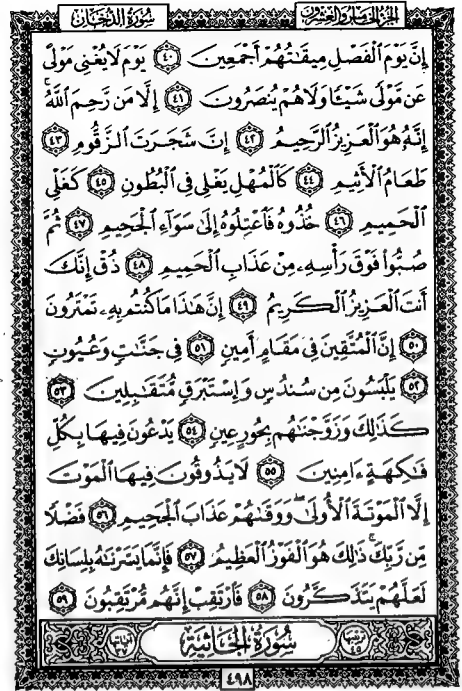 سُورَةُ الدُّخَان
الجُزْءُ الخَامِسُ وَالعِشْرُون
إِنَّ يَوْمَ ٱلْفَصْلِ مِيقَٰتُهُمْ أَجْمَعِينَ ٤٠ يَوْمَ لَا يُغْنِى مَوْلًى
عَن مَّوْلًى شَيْـًٔا وَلَا هُمْ يُنصَرُونَ ٤١ إِلَّا مَن رَّحِمَ ٱللَّهُۚ
إِنَّهُۥ هُوَ ٱلْعَزِيزُ ٱلرَّحِيمُ ٤٢ إِنَّ شَجَرَتَ ٱلزَّقُّومِ ٤٣
طَعَامُ ٱلْأَثِيمِ ٤٤ كَٱلْمُهْلِ يَغْلِى فِى ٱلْبُطُونِ ٤٥ كَغَلْىِ
ٱلْحَمِيمِ ٤٦ خُذُوهُ فَٱعْتِلُوهُ إِلَىٰ سَوَآءِ ٱلْجَحِيمِ ٤٧ ثُمَّ
صُبُّوا۟ فَوْقَ رَأْسِهِۦ مِنْ عَذَابِ ٱلْحَمِيمِ ٤٨ ذُقْ إِنَّكَ
أَنتَ ٱلْعَزِيزُ ٱلْكَرِيمُ ٤٩ إِنَّ هَٰذَا مَا كُنتُم بِهِۦ تَمْتَرُونَ
٥٠ إِنَّ ٱلْمُتَّقِينَ فِى مَقَامٍ أَمِينٍ ٥١ فِى جَنَّٰتٍ وَعُيُونٍ
٥٢ يَلْبَسُونَ مِن سُندُسٍ وَإِسْتَبْرَقٍ مُّتَقَٰبِلِينَ ٥٣
كَذَٰلِكَ وَزَوَّجْنَٰهُم بِحُورٍ عِينٍ ٥٤ يَدْعُونَ فِيهَا بِكُلِّ
فَٰكِهَةٍ ءَامِنِينَ ٥٥ لَا يَذُوقُونَ فِيهَا ٱلْمَوْتَ
إِلَّا ٱلْمَوْتَةَ ٱلْأُولَىٰۖ وَوَقَىٰهُمْ عَذَابَ ٱلْجَحِيمِ ٥٦ فَضْلًا
مِّن رَّبِّكَۚ ذَٰلِكَ هُوَ ٱلْفَوْزُ ٱلْعَظِيمُ ٥٧ فَإِنَّمَا يَسَّرْنَٰهُ بِلِسَانِكَ
لَعَلَّهُمْ يَتَذَكَّرُونَ ٥٨ فَٱرْتَقِبْ إِنَّهُم مُّرْتَقِبُونَ ٥٩
ترتيبها ٤٥ سُورَةُ الجَاثِيَةِ آياتها ٣٧
٤٩٨